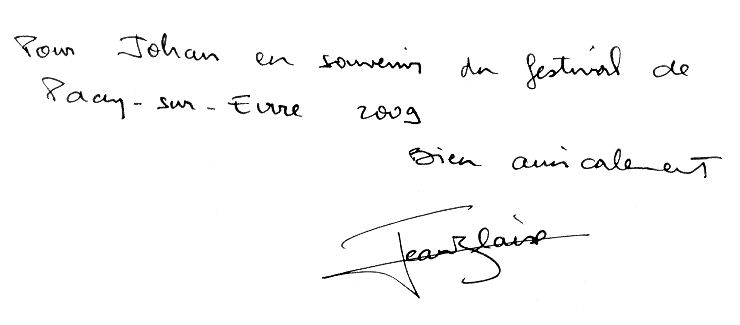 Pour Johan en souvenir du festival de
Pacy-sur-Eure 2009
Bien amicalement
JeanBlaise